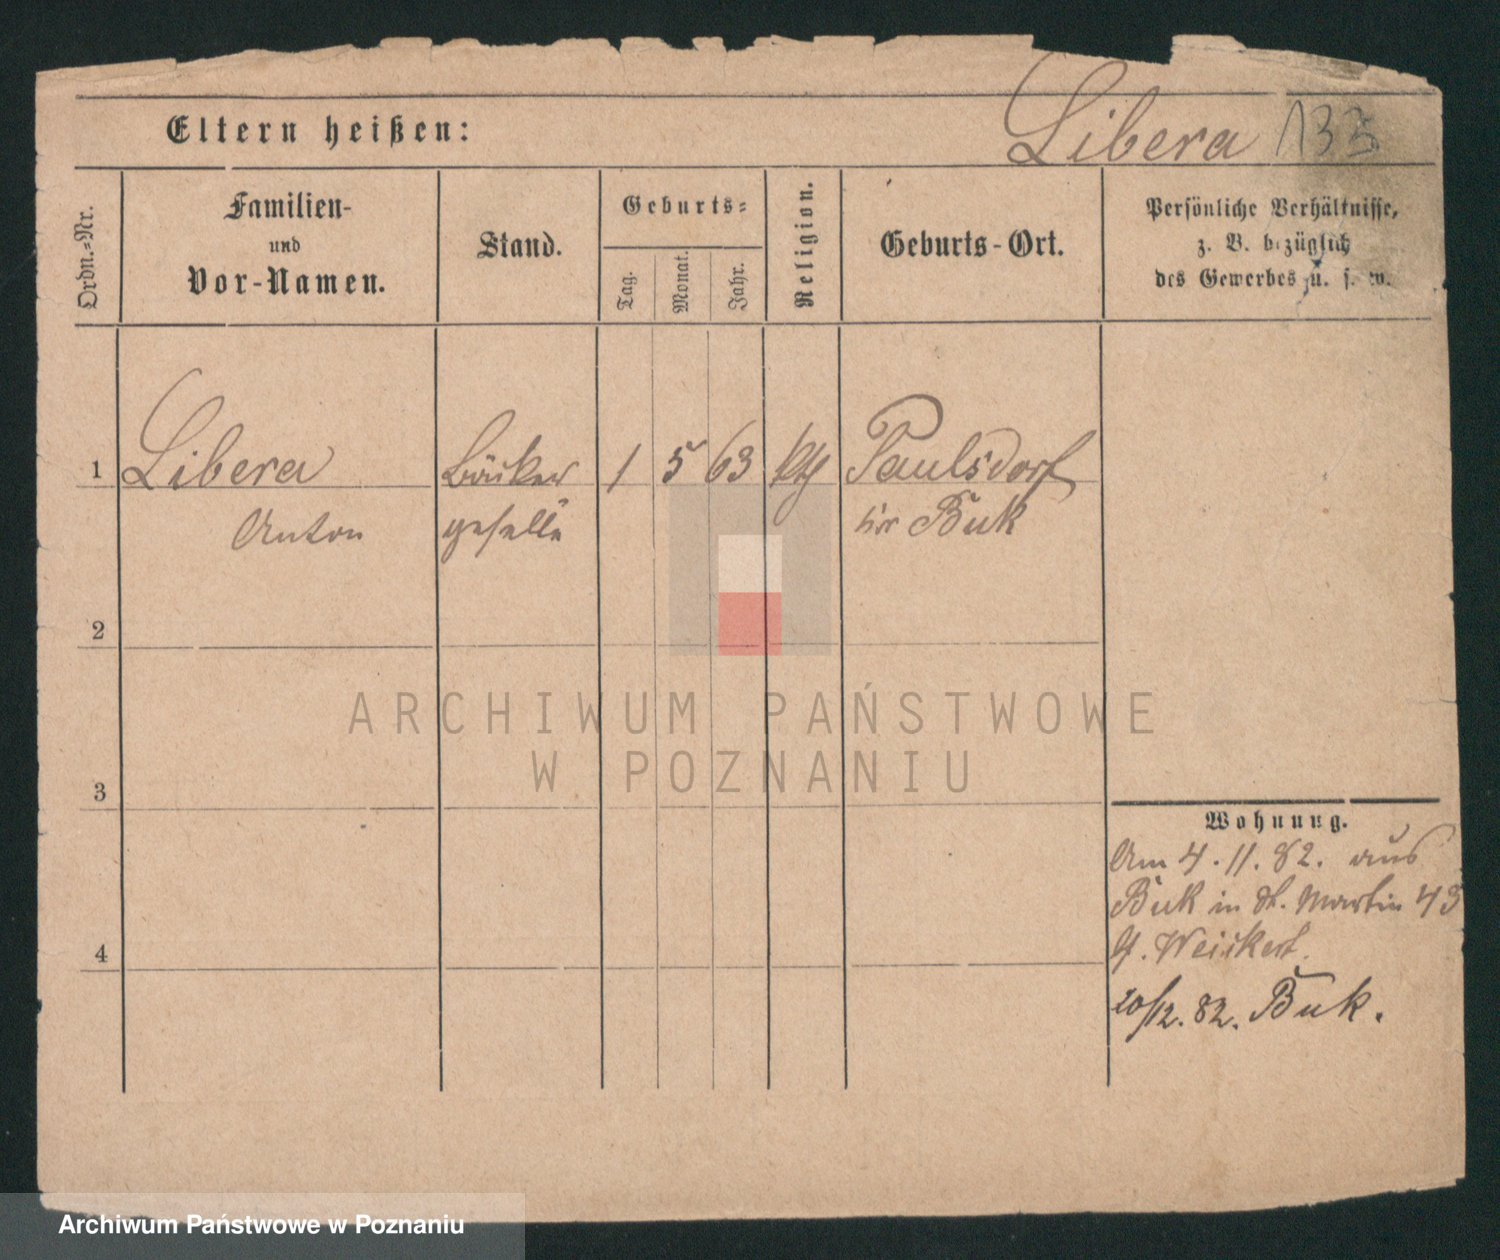 Eltern heißen:
Libera 133
Ordn.-Nr.
Familien-
und
Vor-Namen.
Stand.
Geburts-
Tag.
Monat.
Jahr.
Religion.
Geburts-Ort.
Persönliche Verhältnisse,
z. B. bezüglich
des Gewerbes u. s. w.
1 Libera Bäcker 1 5 63 kth Paulsdorf
Anton geselle Kr Buk
2
ARCHIWUM PAŃSTWOWE
W POZNANIU
3
4
Wohnung.
Am 4.11.82. aus
Buk in St. Martin 43
Weickert.
20/12. 82. Buk.
Archiwum Państwowe w Poznaniu